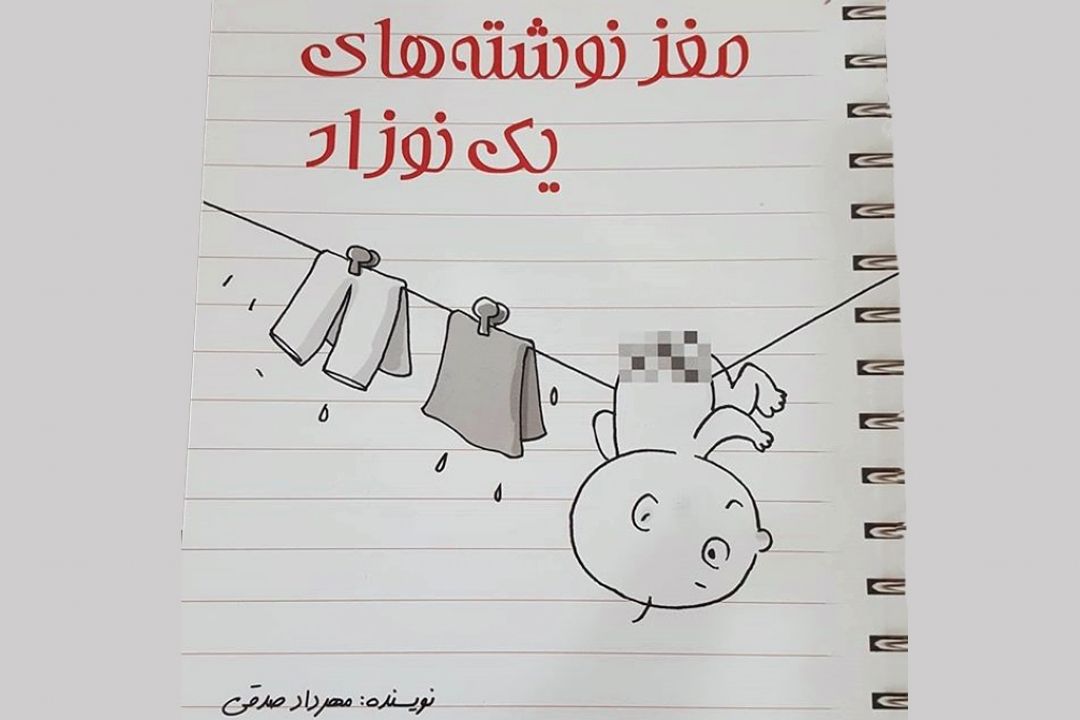 مغز نوشته‌های
یک نوزاد
نویسنده: مهرداد صدقی